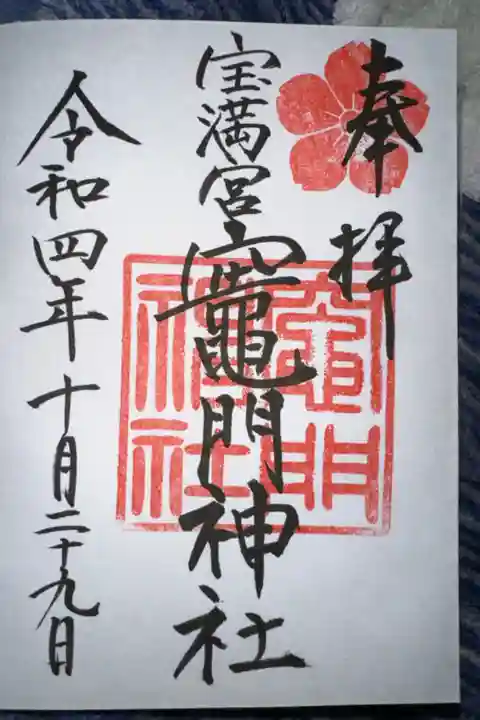 奉拝
宝満宮竈門神社
竈門神社
令和四年十月二十九日